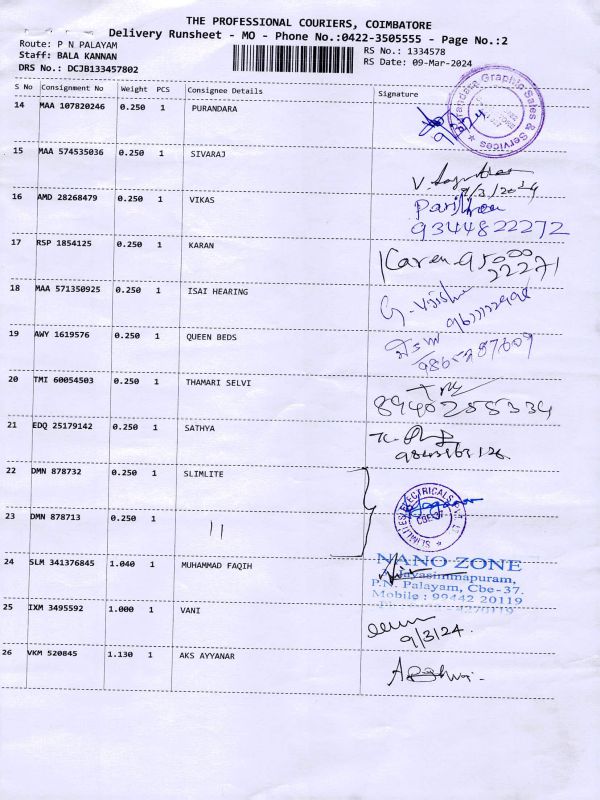 THE PROFESSIONAL COURIERS, COIMBATORE
Delivery Runsheet - MO - Phone No.:0422-3505555 - Page No.:2
Route: P N PALAYAM
RS No.: 1334578
Staff: BALA KANNAN
RS Date: 09-Mar-2024
DRS No.: DCJB133457802
S No Consignment No Weight PCS Consignee Details Signature
14 MAA 107820246 0.250 1 PURANDARA
Graphic Sales & Services
15 MAA 574535036 0.250 1 SIVARAJ
9/3/2024
16 AMD 28268479 0.250 1 VIKAS
9344822272
17 RSP 1854125 0.250 1 KARAN
Karan 95000
22271
18 MAA 571350925 0.250 1 ISAI HEARING
19 AWY 1619576 0.250 1 QUEEN BEDS
20 TMI 60054503 0.250 1 THAMARI SELVI
8940255334
21 EDQ 25179142 0.250 1 SATHYA
22 DMN 878732 0.250 1 SLIMLITE
SLIMLITES ELECTRICALS PVT LTD
CBE-37
23 DMN 878713 0.250 1 11
24 SLM 341376845 1.040 1 MUHAMMAD FAQIH
NANO ZONE
P.N. Palayam, Cbe-37.
Mobile : 99442 20119
25 IXM 3495592 1.000 1 VANI
9/3/24.
26 VKM 520845 1.130 1 AKS AYYANAR